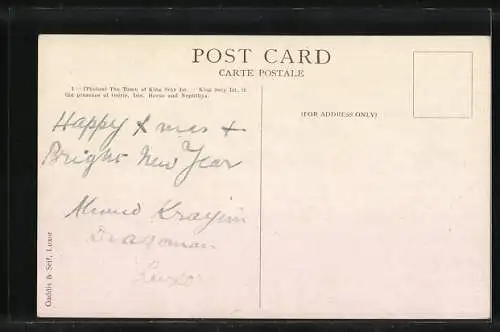 POST CARD
CARTE POSTALE
1 - (Thebes) The Tomb of King Sety Ist. King Sety Ist, in
the presence of Osiris, Isis, Horus and Nephthys.
(FOR ADDRESS ONLY)
Happy X mas +
Bright New Year
Krayim
Dragoman
Luxor
Gaddis & Seif, Luxor